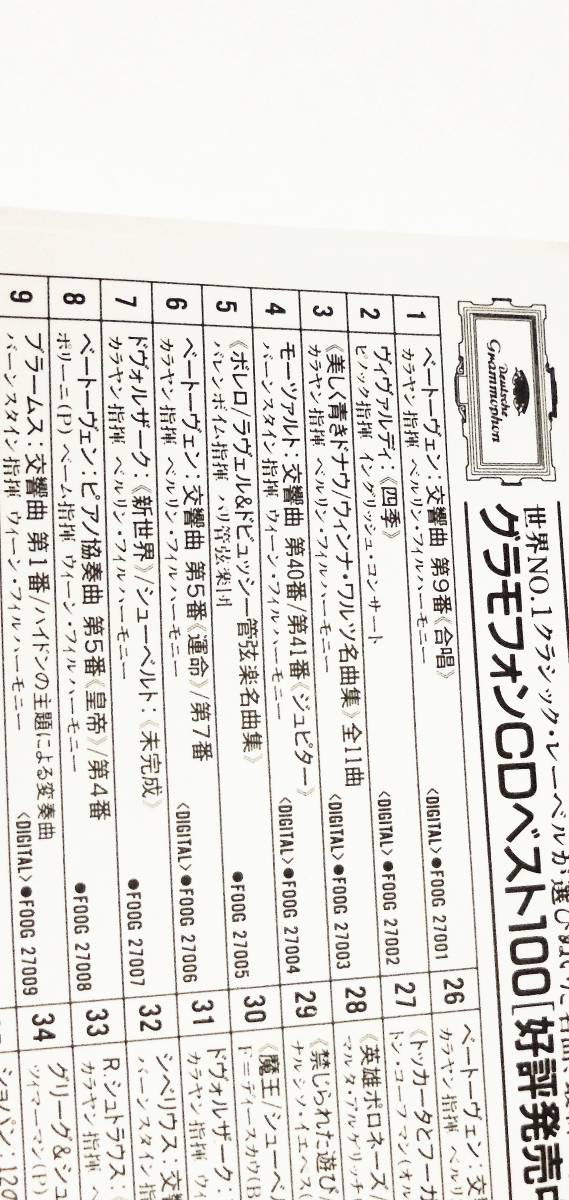 Deutsche
Grammophon
世界NO.1クラシック・レーベルが選び抜いた名曲、
グラモフォンCDベスト100[好評発売中
1
ベートーヴェン：交響曲 第9番《合唱》
カラヤン指揮 ベルリン・フィルハーモニー
〈DIGITAL〉●F00G 27001
2
ヴィヴァルディ：《四季》
ピノック指揮 イングリッシュ・コンサート
〈DIGITAL〉●F00G 27002
3
《美しく青きドナウ/ウィンナ・ワルツ名曲集》全11曲
カラヤン指揮 ベルリン・フィルハーモニー
〈DIGITAL〉●F00G 27003
4
モーツァルト：交響曲 第40番/第41番《ジュピター》
バーンスタイン指揮 ウィーン・フィルハーモニー
〈DIGITAL〉●F00G 27004
5
《ボレロ/ラヴェル&ドビュッシー管弦楽名曲集》
バレンボイム指揮 パリ管弦楽団
●F00G 27005
6
ベートーヴェン：交響曲 第5番《運命》/第7番
カラヤン指揮 ベルリン・フィルハーモニー
〈DIGITAL〉●F00G 27006
7
ドヴォルザーク：《新世界》/シューベルト：《未完成》
カラヤン指揮 ベルリン・フィルハーモニー
●F00G 27007
8
ベートーヴェン：ピアノ協奏曲 第5番《皇帝》/第4番
ポリーニ(P) ベーム指揮 ウィーン・フィルハーモニー
●F00G 27008
9
ブラームス：交響曲 第1番/ハイドンの主題による変奏曲
バーンスタイン指揮 ウィーン・フィルハーモニー
〈DIGITAL〉●F00G 27009
26
ベートーヴェン：交
カラヤン指揮 ベルリ
27
《トッカータとフーガ
トン・コープマン(オル
28
《英雄ポロネーズ/
マルタ・アルゲリッチ(
29
《禁じられた遊び
ナルシソ・イエペス(
30
《魔王/シューベル
ドニディースカウ(B
31
ドヴォルザーク：
カラヤン指揮 ウィ
32
シベリウス：交響
バーンスタイン指
33
R.シュトラウス：《
カラヤン指揮 ベ
34
グリーグ&シュ
ツィマーマン(P)
ショパン：12の